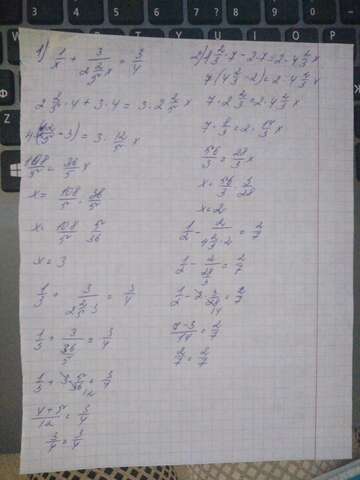 1) 1/x + 3/(2 2/5 x) = 3/4
2 2/5 · 4 + 3 · 4 = 3 · 2 2/5 x
4(12/5 + 3) = 3 · 12/5 x
108/5 = 36/5 x
x = 108/5 : 36/5
x = 108/5 · 5/36
x = 3
1/3 + 3/(2 2/5 · 3) = 3/4
1/3 + 3/(36/5) = 3/4
1/3 + 3 · 5/36 = 3/4
12
(4+5)/12 = 3/4
3/4 = 3/4
7(4 2/3 - 2) = 2 · 4 2/3 x
7 · 2 2/3 = 2 · 4 2/3 x
7 · 8/3 = 2 · 14/3 x
56/3 = 28/3 x
x = 56/3 · 3/28
x = 2
1/2 - 2/(4 2/3 · 2) = 2/7
1/2 - 2/(28/3) = 2/7
1/2 - 2 · 3/28 = 2/7
14
(7-3)/14 = 2/7
2/7 = 2/7